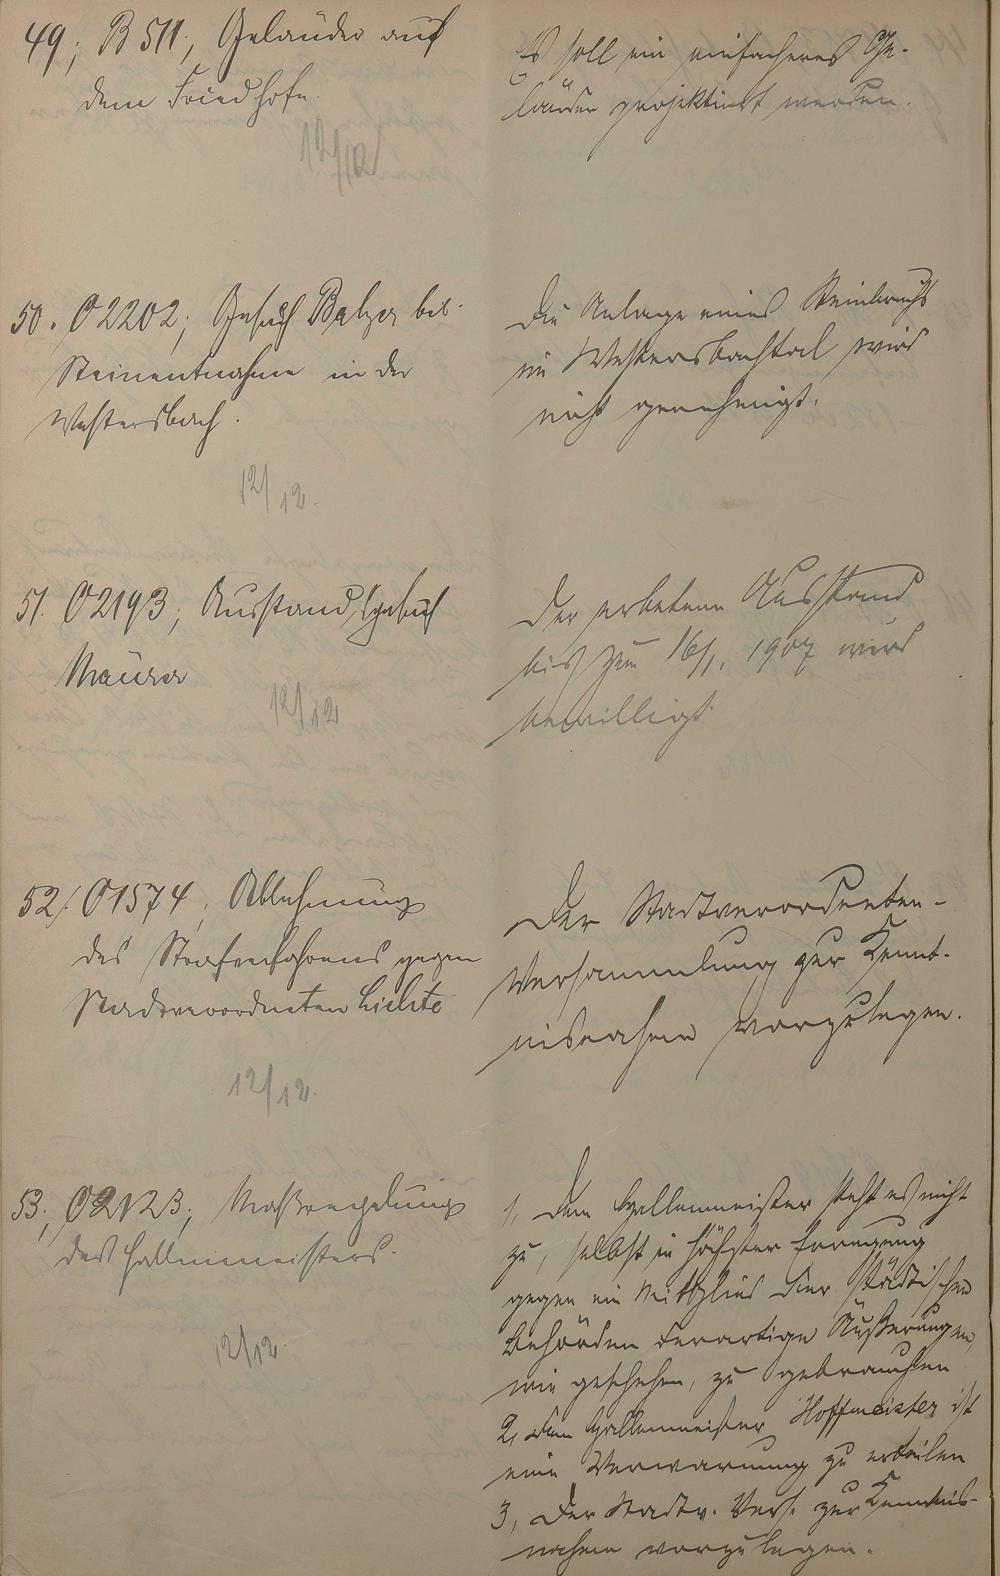 49; B 511; Geländer auf
dem Friedhofe.
12/12
Es soll ein einfacheres Ge-
länder projektiert werden.
50. O 2202; Gesuch Balzer bet.
Steinentnahme in der
Westersbach.
12/12.
Die Anlage eines Steinbruchs
im Westersbachtal wird
nicht genehmigt.
51. O 2193; Ausstandsgesuch
Maurer
12/12
Der erbetene Ausstand
bis zum 16/1. 1907 wird
bewilligt.
52/. O 1574; Ablehnung
des Strafverfahrens gegen
Stadtverordneten
12/12.
Der Stadtverordneten-
Versammlung zur Kennt-
nisnahme vorzulegen.
53; O 2123; Maßregelung
des Hallenmeisters.
12/12.
1, Dem Hallenmeister steht es nicht
zu, selbst in höchster Erregung
gegen ein Mitglied der städtischen
Behörden derartige Äußerungen,
wie geschehen, zu gebrauchen
2, Dem Hallenmeister Hoffmeister ist
eine Verwarnung zu erteilen
3, Der Stadtv. Vers. zur Kenntnis-
nahme vorzulegen.